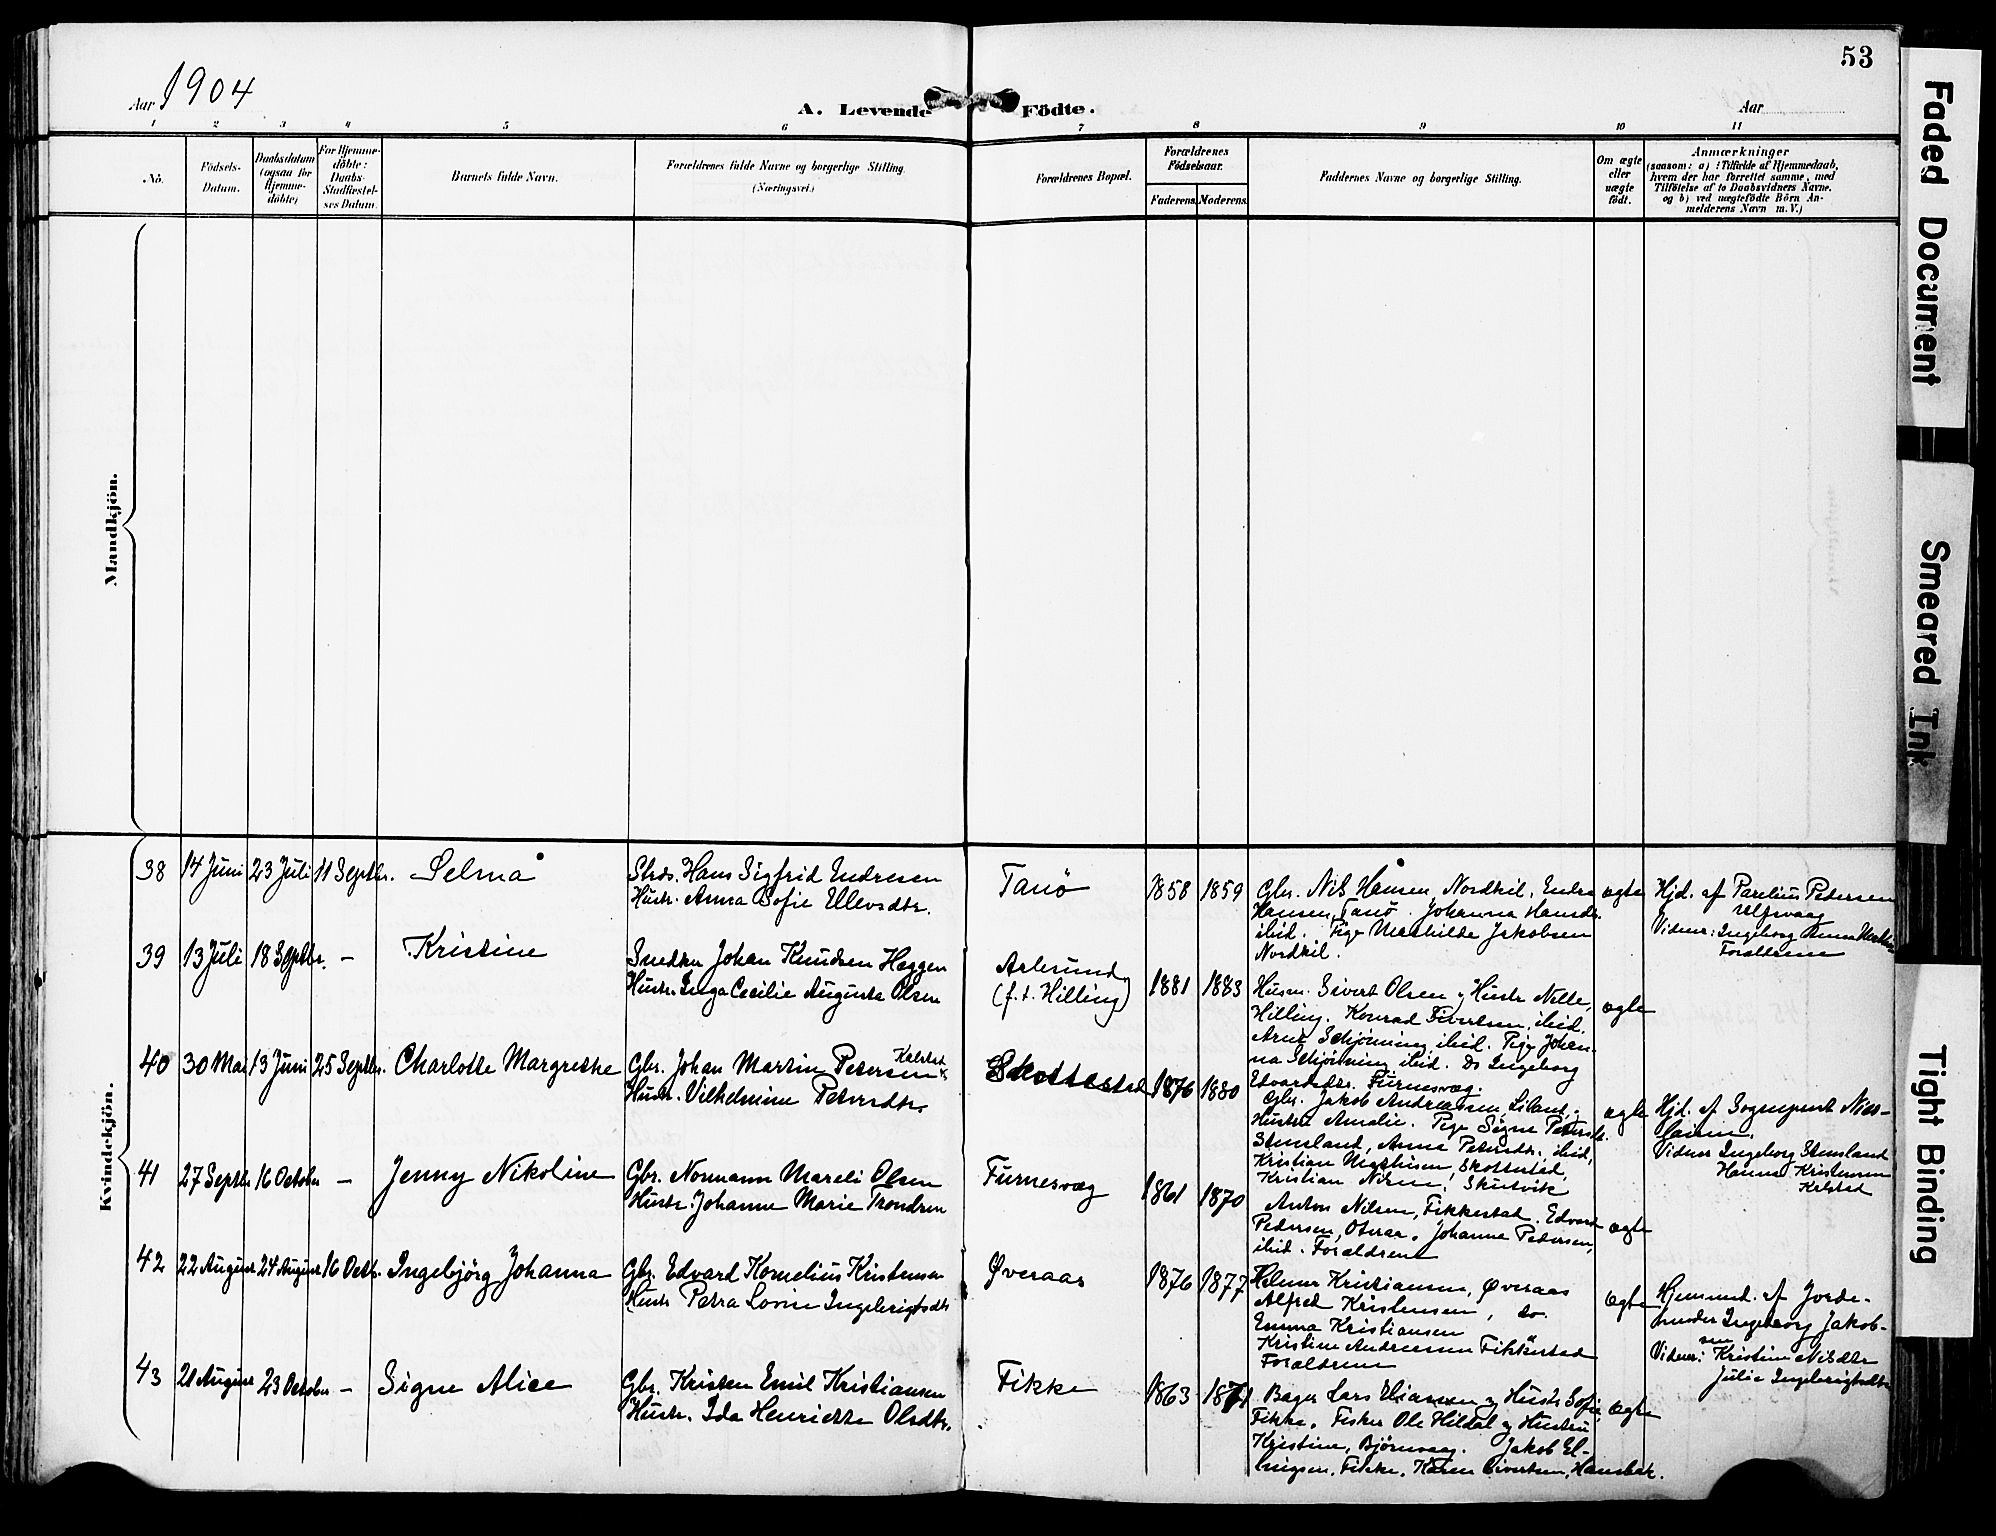 53
Aar 1904
A. Levende Födte.
Aar
1 2 3 4 5 6 7 8 9 10 11
No.
Födsels-
Datum.
Daabsdatum
(ogsaa for
Hjemme-
döbte)
For Hjemme-
döbte:
Daabs-
Stadfæstel-
ses Datum.
Barnets fulde Navn.
Forældrenes fulde Navne og borgerlige Stilling.
(Næringsvei.)
Forældrenes Bopæl.
Forældrenes
Födselsaar.
Faderens. Moderens.
Faddernes Navne og borgerlige Stilling.
Om ægte
eller
uægte
födt.
Anmærkninger
(saasom: a) i Tilfælde af Hjemmedaab,
hvem der har forrettet samme, med
Tilföielse af to Daabsvidners Navne.
og b) ved uægtefödte Börn An-
melderens Navn m. V.)
Mandkjön.
Kvindekjön.
38 14 Juni 23 Juli 11 Septbr. Selma
Hans Sigfrid Endresen
Hustr. Anna Sofie Ellevsdtr.
Tanö
1858 1859
Gbr. Nils Hansen, Nordkil, Endre
Hansen, Tanö. Johanna Hansdr.
ibid. Pige Mathilde Jakobsen
Nordkil.
ægte
Hjd. af Parelius Pedersen
Ulfsvaag
Vidner: Ingeborg Anna
Forældrene
39 13 Juli 18 Septbr. – Kristine
Snedker Johan Knudsen Heggen
Hustr. Inga Cecilie Augusta Olsen
(f. t. Hilling)
1881 1883
Husm. Sivert Olsen og Hustr Nelle,
Hilling. Konrad Sivertsen, ibid.
Arnt Schjönning ibid. Pige Johan-
na Schjönning, ibid. Do Ingeborg
Edvardsdtr. Furnesvæg.
ægte
40 30 Mai 13 Juni 25 Septbr. Charlotte Margrethe
Gbr. Johan Martin Petersen Kalstad
Hustr. Vilhelmine Petersdtr.
Skottestad
1876 1880
Gbr. Jakob Andreassen, Liland,
Hustru Amalie. Pige Signe Petersdr.
Stensland, Anna Petersdr. ibid,
Kristian Mathisen, Skottestad,
Kristian Nilsen, Skutvik
ægte
Hjd. af Sogneprest Nies-
Vidner Ingeborg Stensland
Hanna Kristensen
Kalstad
41 27 Septbr 16 October – Jenny Nikoline
Gbr. Normann Mareli Olsen
Hustr. Johanne Marie Trondsen
Furnesvæg
1861 1870
Anton Nilsen, Fikkestad. Edvard
Pedersen, Johanna Pedersen,
ibid. Forældrene
ægte
42 22 August 24 August 16 Octb. Ingebjörg Johanna
Gbr. Edvard Kornelius Kristensen
Hustr Petra Lovise Ingebrigtsdtr
Øveraas
1876 1877
Helmer Kristiansen, Øveraas
Alfred Kristensen, do.
Emma Kristiansen
Kristine Andreasen Fikkestad
Forældrene
ægte
Hjemmed. af Jorde-
moder Ingeborg Jakob-
sen
Vidner: Kristine Nilsdtr
Julie Ingebrigtsdtr
43 21 August 23 October – Signe Alice
Gbr. Kristen Emil Kristiansen
Hustr. Ida Henriette Olsdtr.
Fikke
1863 1871
Bager Lars Eliassen og Hustr Sofie,
Fikke. Fisker Ole Hildal og Hustru
Kristine, Björnvaag. Jakob El-
lingsen, Fikke. Karen Sivertsen, Hamsbak.
ægte
Faded Document
Smeared Ink
Tight Binding